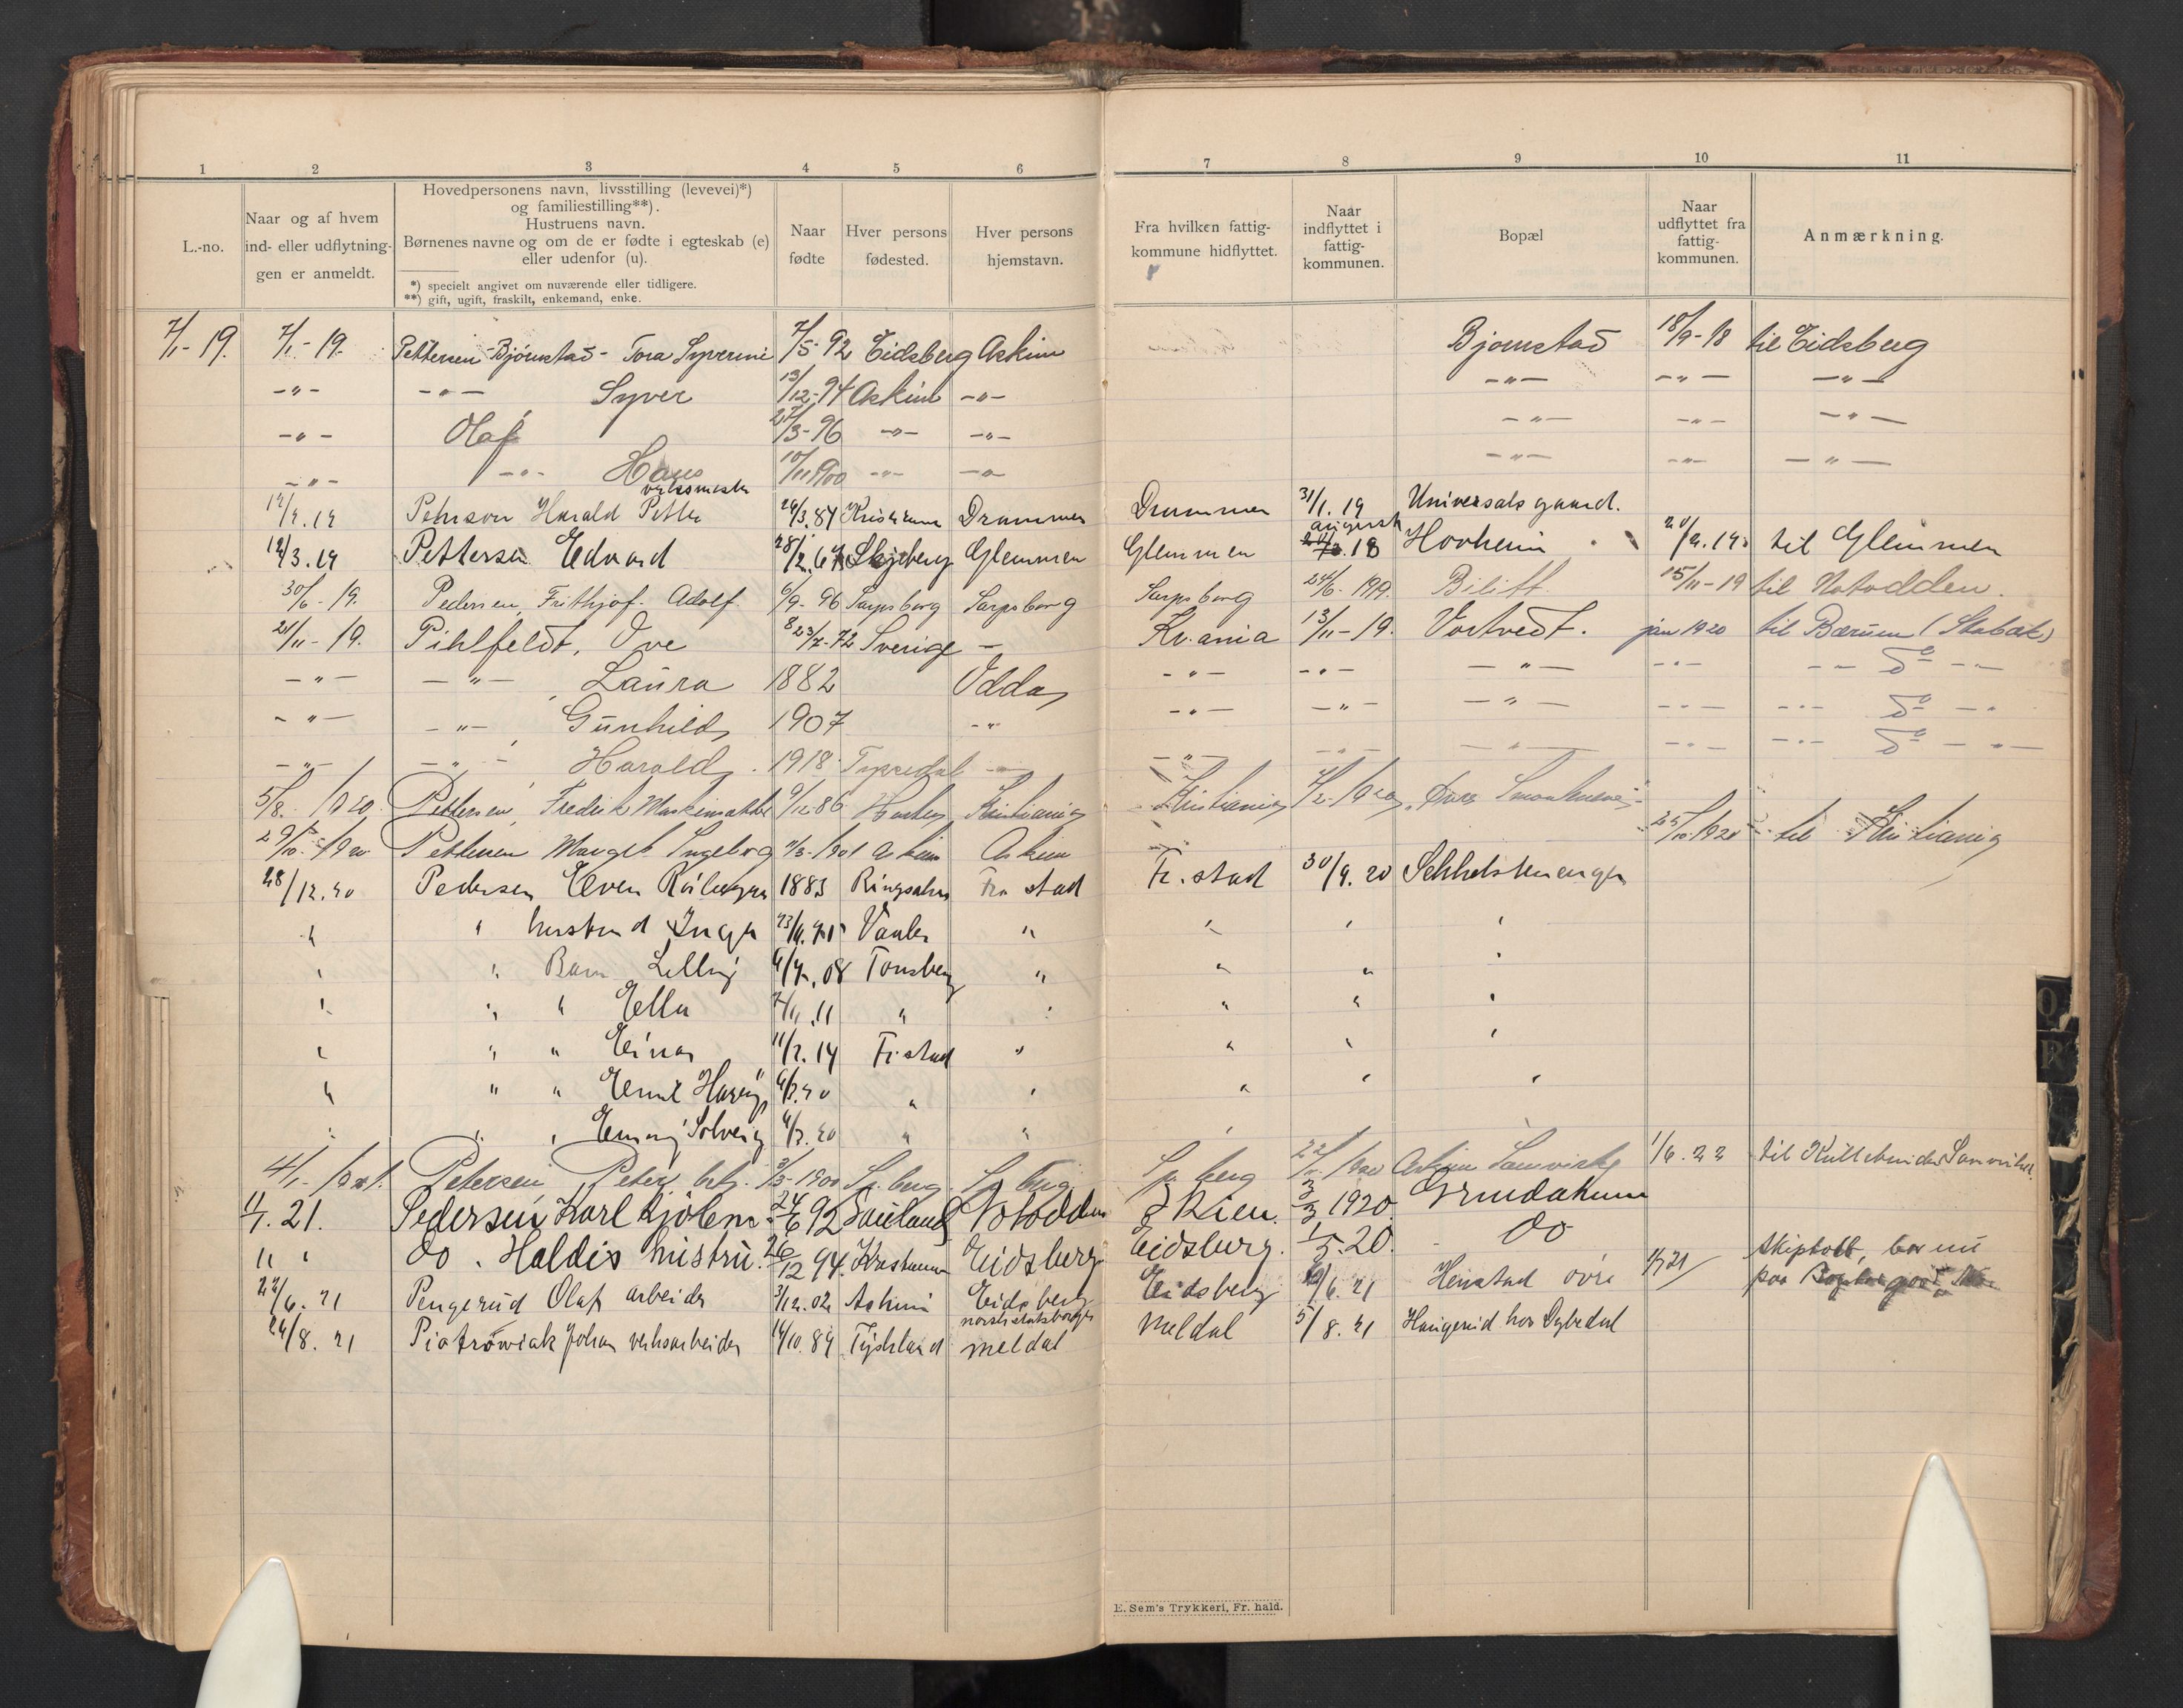 1 2 3 4 5 6 7 8 9 10 11
L.-no.
Naar og af hvem
ind- eller udflytning-
gen er anmeldt.
Hovedpersonens navn, livsstilling (levevei)*)
og familiestilling**).
Hustruens navn.
Børnenes navne og om de er fødte i egteskab (e)
eller udenfor (u).
*) specielt angivet om nuværende eller tidligere.
**) gift, ugift, fraskilt, enkemand, enke.
Naar
fødte
Hver persons
fødested.
Hver persons
hjemstavn.
Fra hvilken fattig-
kommune hidflyttet.
Naar
indflyttet i
fattig-
kommunen.
Bopæl
Naar
udflyttet fra
fattig-
kommunen.
Anmærkning.
7/1-19. 7/1-19. Pettersen Bjørnstad - Tora Syverine 7/5-92 Eidsberg Askim Bjørnstad 18/9-18 til Eidsberg
-"- -"- Syver 13/12-94 Askim -"- -"- -"- -"-
-"- Olaf 27/3-96 -"- -"- -"- -"- -"-
-"- -"- Hans 10/11 1900 -"- -"- -"- -"- -"-
verksmester
Harald Petter 26/3.84 Drammen Drammen 31/1.19 Universalsgaard.
august
Pettersen Edvard Skjeberg Glemmen Glemmen 18 Hovheim til Glemmen
30/6-19. Pedersen, Frithjof Adolf 6/9-96 Sarpsborg Sarpsborg Sarpsborg 24/6-1919. Bilitt 15/11-19 til Notodden.
21/11-19. Pihlfeldt, Ove 23/7-72 Sverige - Kr.ania 13/11-19. Vortvedt. jan 1920 til Bærum (Stabæk)
-"- -"- Laura 1882 Odda -"- -"- -"- -"- -"- do -"-
-"- -"- Gunhild 1907 -"- -"- -"- -"- -"- -"- do -"-
-"- -"- Harold 1918 Tyssedal -"- -"- -"- -"- -"- do -"-
5/8. 1920 Pettersen, Fredrik 9/12-86 Kristiania Kristiania
29/10-1920 Pettersen Margit Ingeborg 1901 Askim Askim 25/10-1920 til Kristiania
28/12.20 Pedersen Even 1883 Ringsaker Fr. stad Fr. stad 30/9.20
" " hustrud Inga Vaaler " " " "
" " Barn Lilly 08 Tønsberg " " " "
" " " Ella 11 " " " " "
" " " Einar 14 Fr. stad " " " "
" " " Emil 20 " " " " "
" " " Emmy Solveig 20 " " "
4/1-1921. Petersen Peter 1900 Sp.berg Sp.berg Sp.berg 1920 Askim Samvirkel. 1/6.22 til
11/1.21. Pedersen, Karl Kjølem 24/6 92 Sauland Notodden Skien. 3/3 1920. Grindakum
" " do. Haldis hustru. 26/12 94. Eidsberg Eidsberg. 1/5.20. do
22/6.21 Pengerud Olaf arbeider 3/12.02 Askim Eidsberg Eidsberg 6.21 Henstad øvre 21 Skiptvet, bor nu
paa
norsk statsborger
24/8.21 Piatrowiak Johan verksarbeider 14/10.84 Tyskland Meldal Meldal 5/8.21 Haugerud hos Dybedal
E. Sem's Trykkeri, Fr. hald.
Q
R